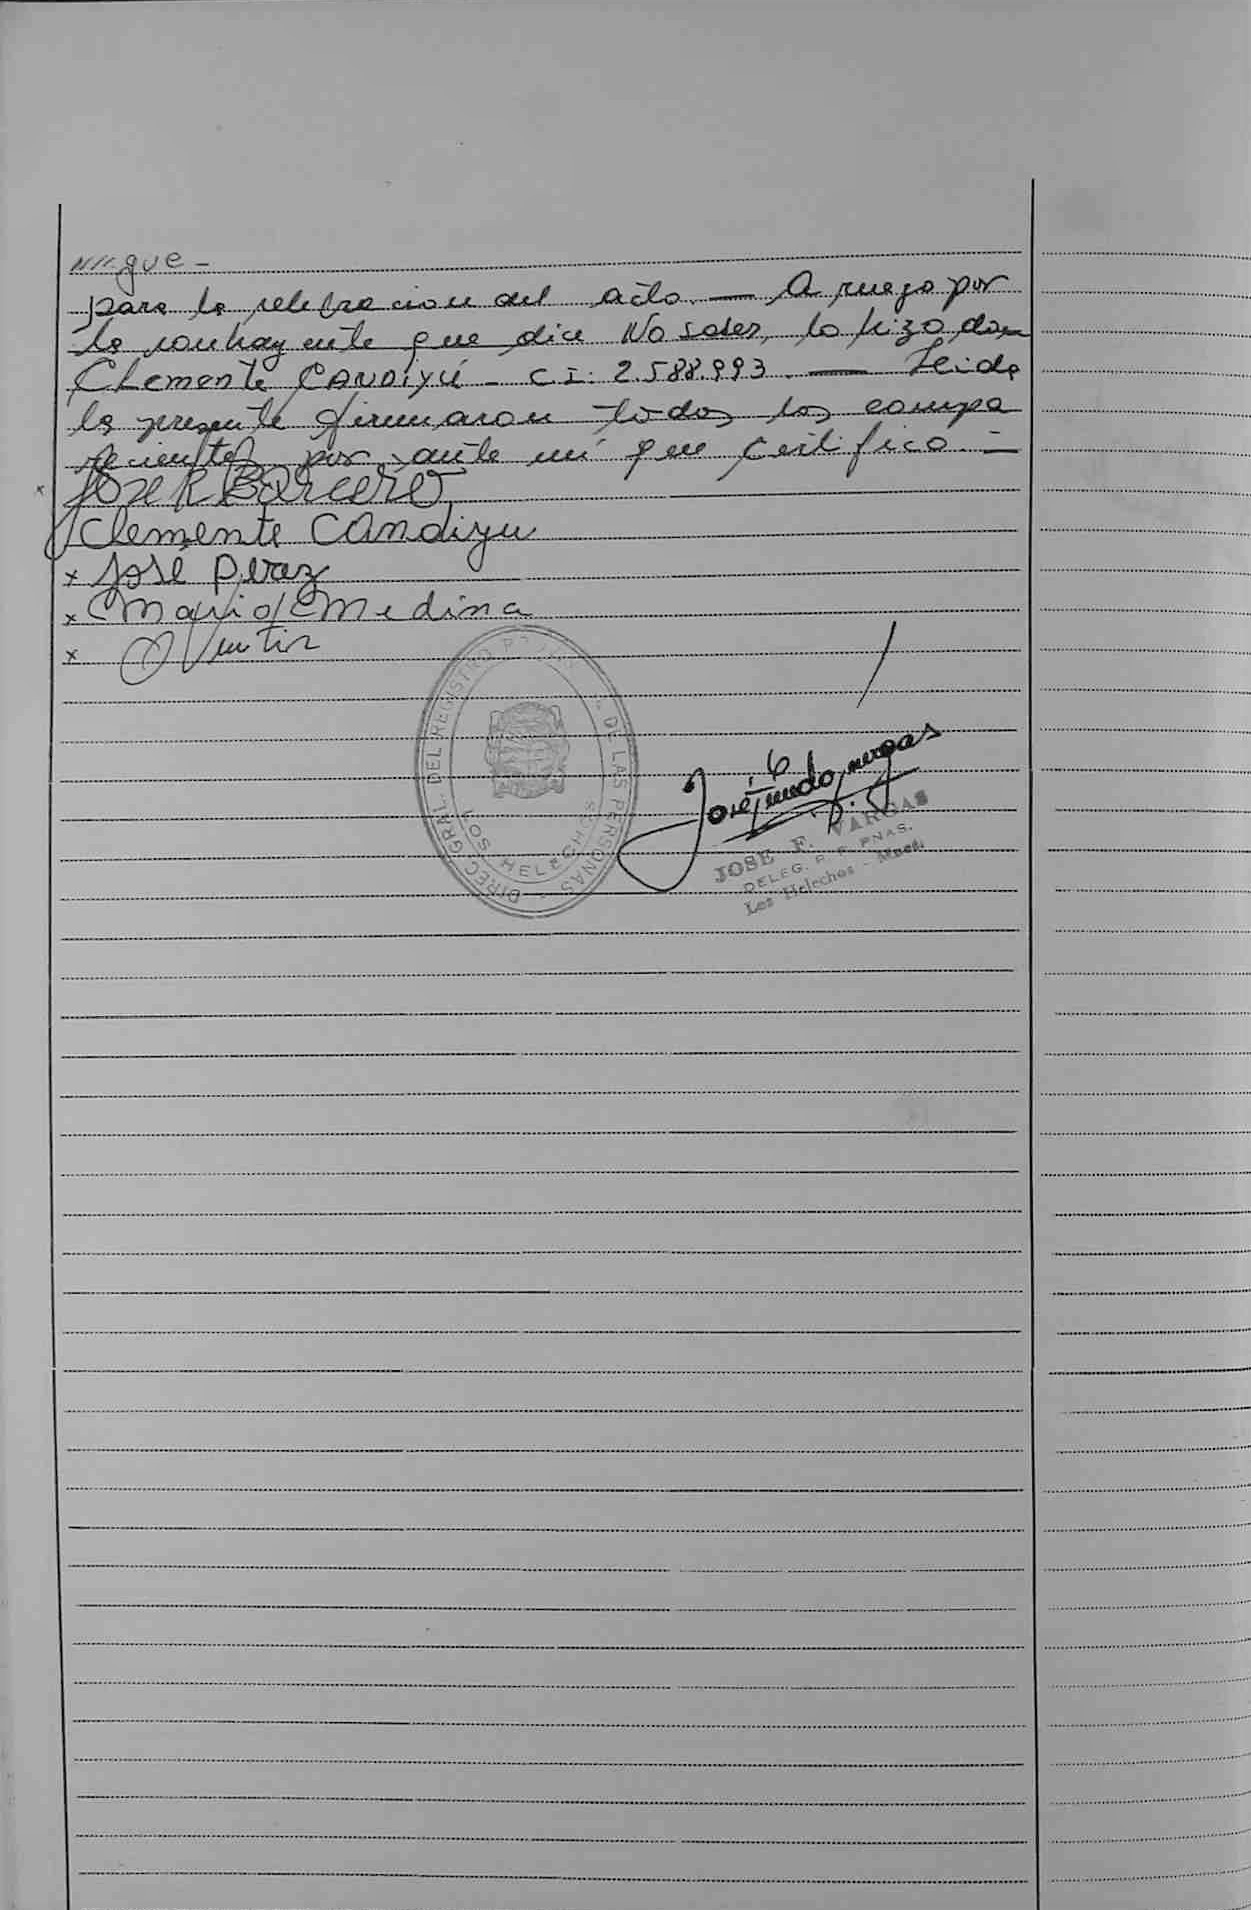 gue -
para la celebracion del acto. — A ruego por
la contrayente que dice No saber, lo hizo don
Clemente CANDIYÚ - C.I: 2.588.993. — Leida
la presente firmaron todos los compa
recientes por ante mí que certifico. =
x José R Barcero
Clemente Candiyu
x José Peraz
x Mario Medina
x
DIREC. GRAL. DEL REGISTRO DE LAS PERSONAS
LOS HELECHOS
JOSE F. VARGAS
DELEG. R. P. PNAS.
Los Helechos - Mnes.